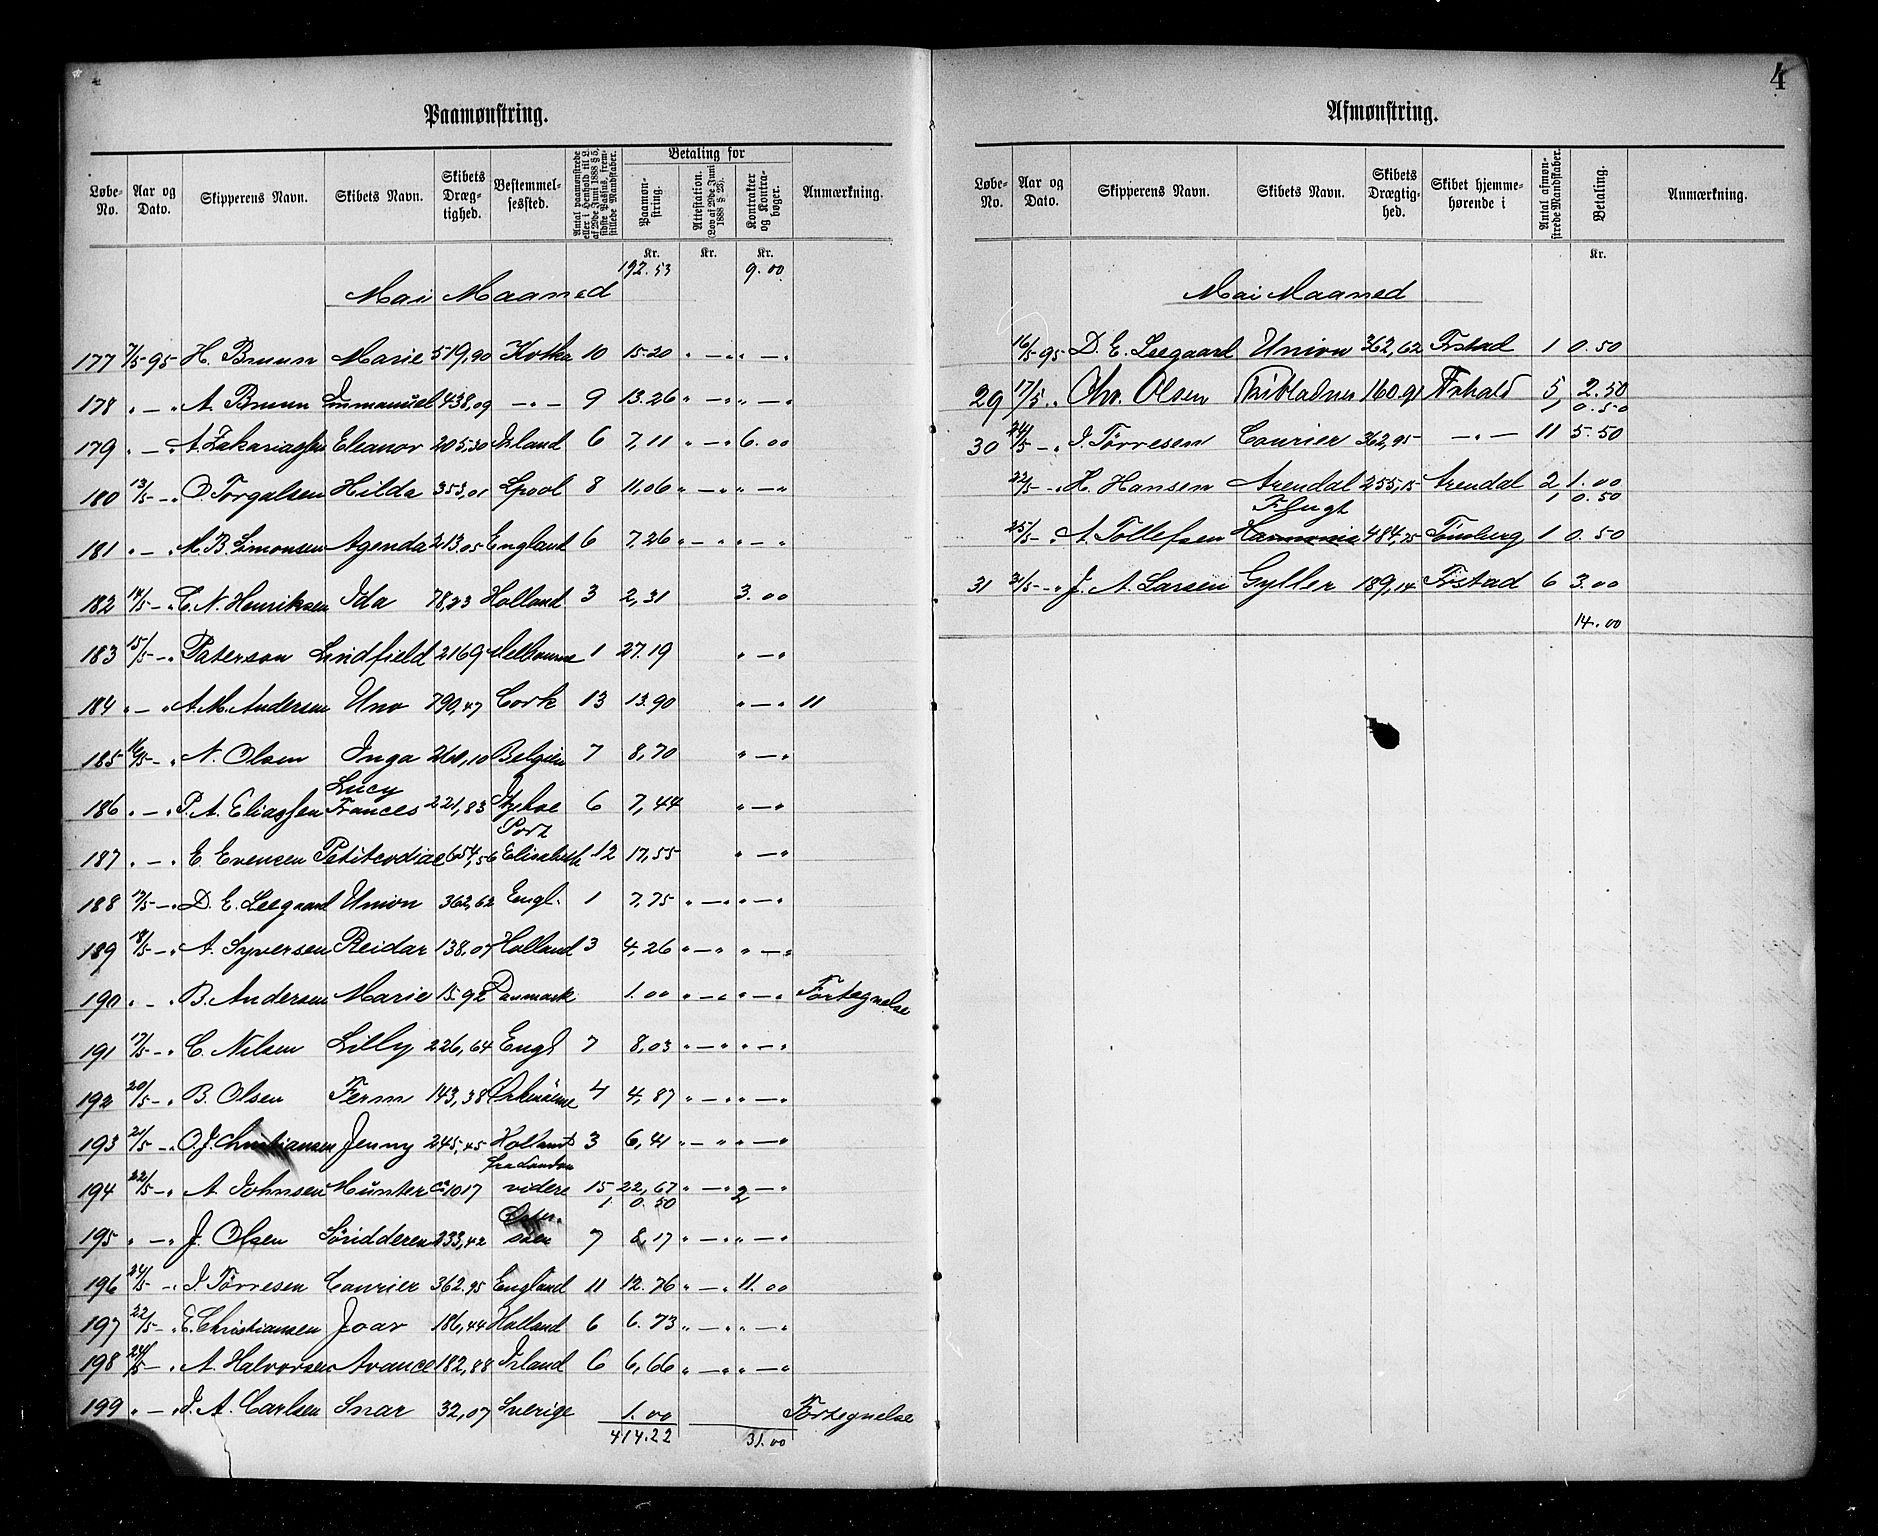 4
Paamønstring.
Løbe-No. Aar og Dato. Skipperens Navn. Skibets Navn. Skibets Dræg-tighed. Bestemmel-sessted. Antal paamønstrede eller i Henhold til L. af 29de Juni 1888 § 5, sidste Passus, frem-stillede Mandskaber. Betaling for Paamøn-string. Attestation. (Lov af 29de Juni 1888 § 23). Kontrakter og Kontra-bøger. Anmærkning.
Kr. Kr. Kr.
192.53 9.00
Mai Maaned
177 7/5-95 H. Bruun Marie 519,90 Kotka 10 15.20 " — " " — "
178 " — " A. Bruun Immanuel 438,09 — " — 9 13.26 " — " " — "
179 " — " A. Zakariassen Eleanor 205,30 Island 6 7,11 " — " 6.00
180 13/5 — " O. Torgalsen Hilda 353,01 Lpool 8 11,06 " — " " — "
181 " — " M. B. Simonsen Agenda 213,05 England 6 7,26 " — " " — "
182 14/5 — " C. N. Henriksen Ida 78,23 Holland 3 2,31 3.00
183 15/5 — " Paterson Lindfield 2169 Melbourne 1 27.19 " — "
184 " — " A. M. Andersen Uno 790,47 Cork 13 13.90 " — " 11
185 16/5 — " N. Olsen Inga 260,10 Belgien 7 8,70 " — "
186 " — " P. A. Eliassen Lucy Frances 221,83 6 7,44 " — "
187 " — " E. Evensen Petitcodiac 654,56 Port Elisabeth 12 17,55 " — "
188 17/5 — " D. E. Leegaard Union 362,62 Engl. 1 7,75 " — " " — "
189 18/5 — " A. Syversen Reidar 138,07 Holland 3 4,26 " — " " — "
190 " — " B. Andersen Marie 15.92 Danmark 1.00 " — " " — " Fortegnelse
191 17/5 — " C. Nilsen Lilly 226,64 Engl 7 8,03 " — " " — "
192 20/5 — " B. Olsen Ferm 143,38 Orknöerne 4 4,87 " — " " — "
193 21/5 — " O. J. Christiansen Jenny 245,45 Holland 3 6,41 " — " " — "
194 22/5 — " A. Johnsen Hunter ca 1017 fra London videre 15 22,67 " — " 2 — "
1 0.50
195 " — " J. Olsen 233,42 Øster-søen 7 8,17 " — " " — "
196 24/5 — " J. Tørresen Courier 362.95 England 11 12.76 " — " 11.00
197 22/5 — " E. Christiansen Joar 186,44 Holland 6 6.73 " — " " — "
198 24/5 — " A. Halvorsen Avance 182,88 Island 6 6,66 " — " " — "
199 " — " J. A. Carlsen Snar 32,07 Sverige 1.00 Fortegnelse
414.22 31.00
4
Afmønstring.
Løbe-No. Aar og Dato. Skipperens Navn. Skibets Navn. Skibets Drægtig-hed. Skibet hjemme-hørende i Antal afmøn-strede Mandskaber. Betaling. Anmærkning.
Kr.
Mai Maaned
16/5-95 D. E. Leegaard Union 362,62 Frstad 1 0.50
29 17/5 " Chr. Olsen 160.91 Frhald 5 2.50
1 0.50
30 24/5 — " J. Tørresen Courier 362,95 — " — 11 5.50
22/5 — " H. Hansen Arendal 255,15 Arendal 2 1.00
1 0.50
25/5 — " A. Tollefsen Flugt Harmonie 484,75 Tønsberg 1 0.50
31 31/5 — " J. A. Larsen Gyller 189,14 Frstad 6 3.00
14.00